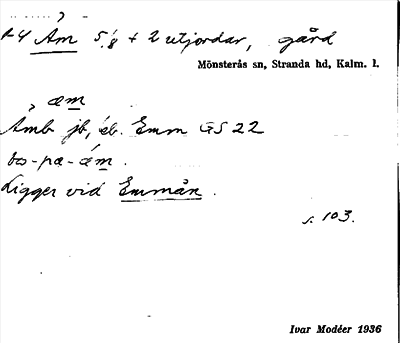 R4 Åm 5/8 + 2 utjordar, gård
Mönsterås sn, Stranda hd, Kalm. l.
æm
Åmb jb, eb. Emm GS 22
bo-pæ-æm.
Ligger vid Emmån.
s. 103.
Ivar Modéer 1936